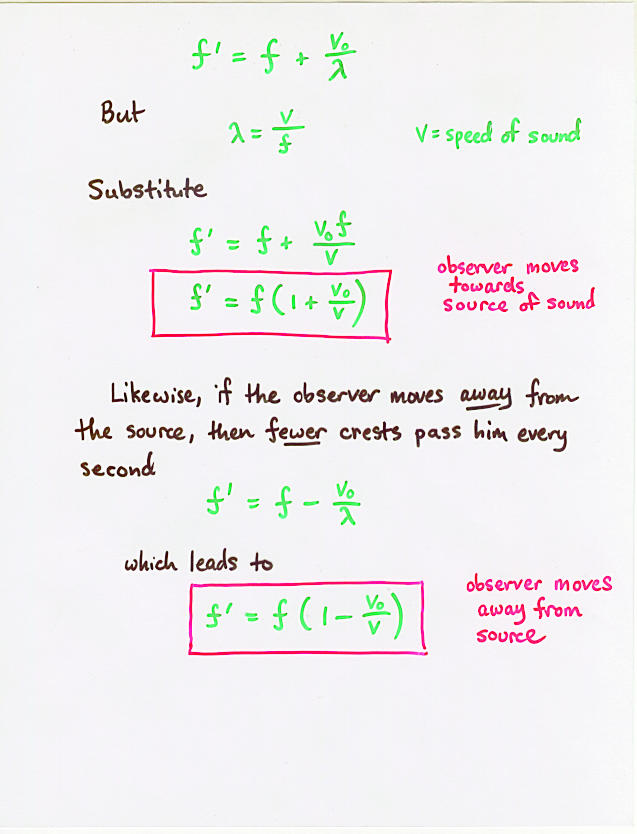 f' = f + v₀/λ
But
λ = v/f
V = speed of sound
Substitute
f' = f + v₀f/v
f' = f(1 + v₀/v)
observer moves
towards
source of sound
Likewise, if the observer moves away from
the source, then fewer crests pass him every
second
f' = f - v₀/λ
which leads to
f' = f(1 - v₀/v)
observer moves
away from
source